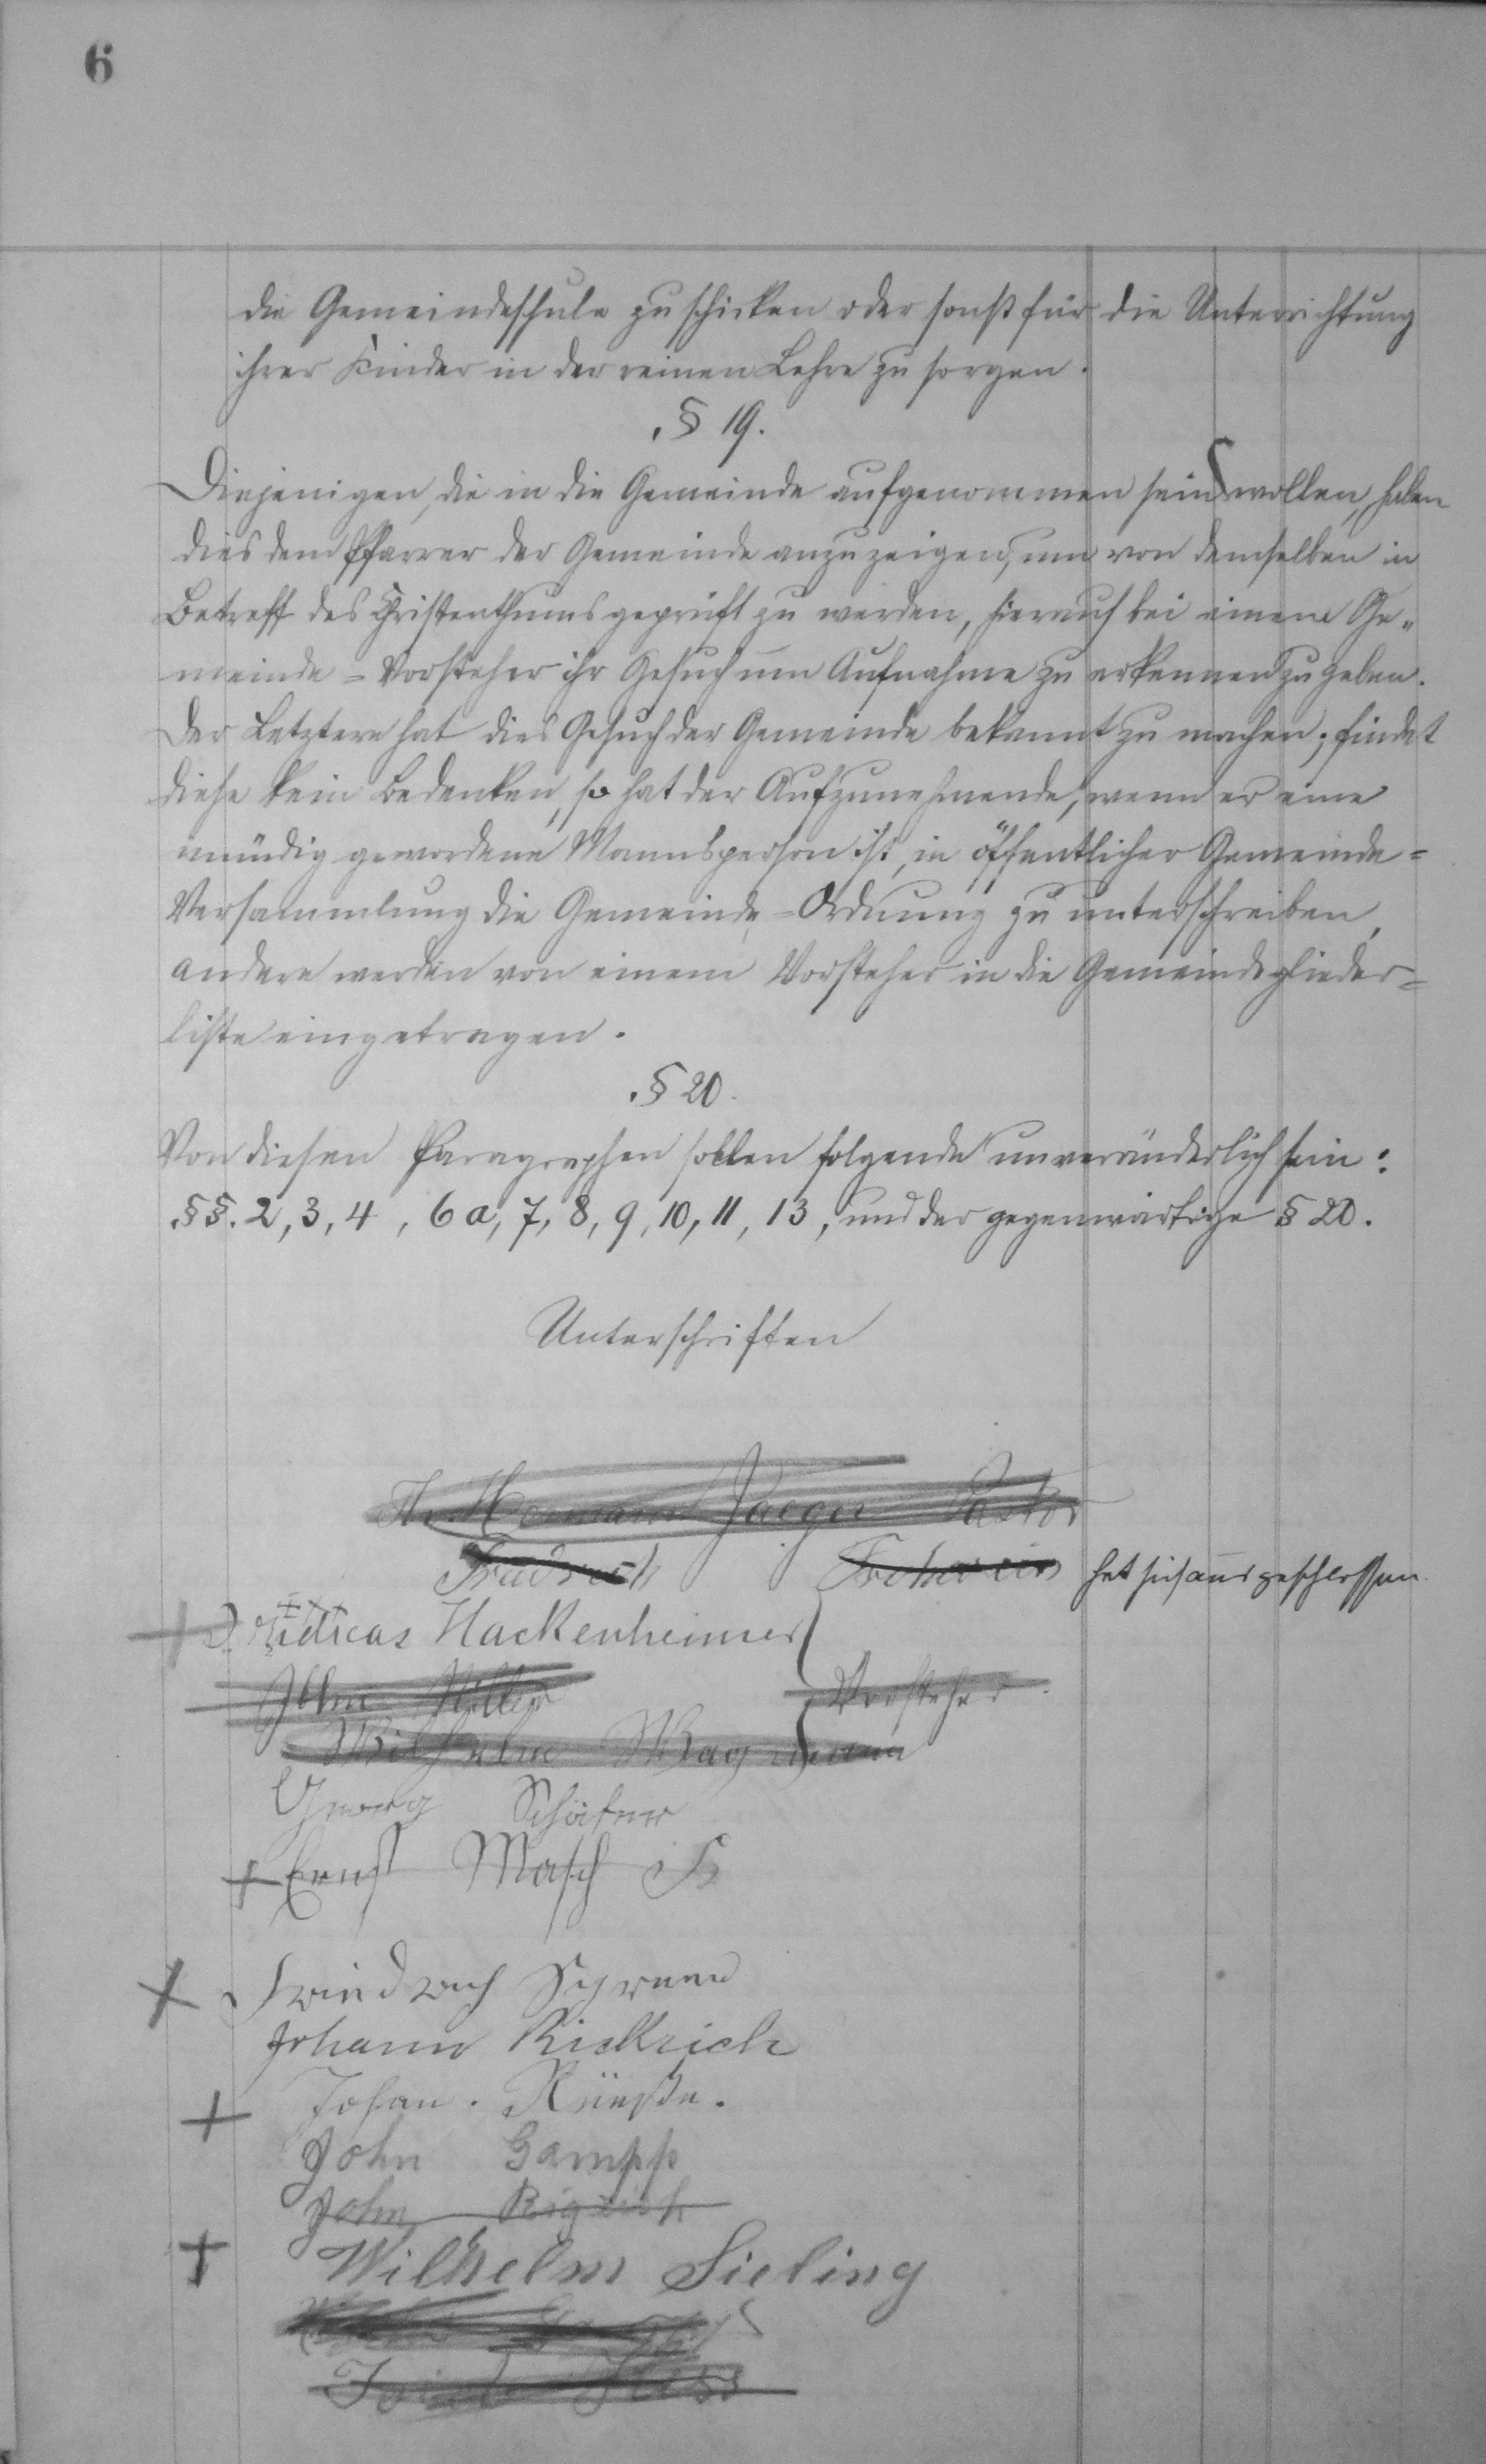 6
die Gemeindeschule zu schicken oder sonst für die Unterrichtung
ihrer Kinder in der reinen Lehre zu sorgen.
§ 19.
Diejenigen, die in die Gemeinde aufgenommen sein wollen, haben
dies dem Pfarrer der Gemeinde anzuzeigen, um von demselben in
Betreff des Christenthums geprüft zu werden, hierauf bei einem Ge-
meinde-Vorsteher ihr Gesuch um Aufnahme zu erkennen zu geben.
Der Letztere hat dies Gesuch der Gemeinde bekannt zu machen; findet
diese kein Bedenken, so hat der Aufzunehmende, wenn er eine
mündig gewordene Mannsperson ist, in öffentlicher Gemeinde-
Versammlung die Gemeinde-Ordnung zu unterschreiben,
andere werden von einem Vorsteher in die Gemeindeglieder-
liste eingetragen.
§ 20.
Von diesen Paragraphen sollen folgende unveränderlich sein:
§§. 2, 3, 4, 6a, 7, 8, 9, 10, 11, 13, und der gegenwärtige § 20.
Unterschriften
Hermann Jaeger Pastor
Friedrich hat sich ausgeschlossen.
Hackenheimer
John Miller Vorsteher.
Wilhelm
Georg Schäfer
+ Ernst Masch
+ Friedrich
Johann Rickrich
+ Johan.
John Gampp
John
+ Wilhelm Sieling